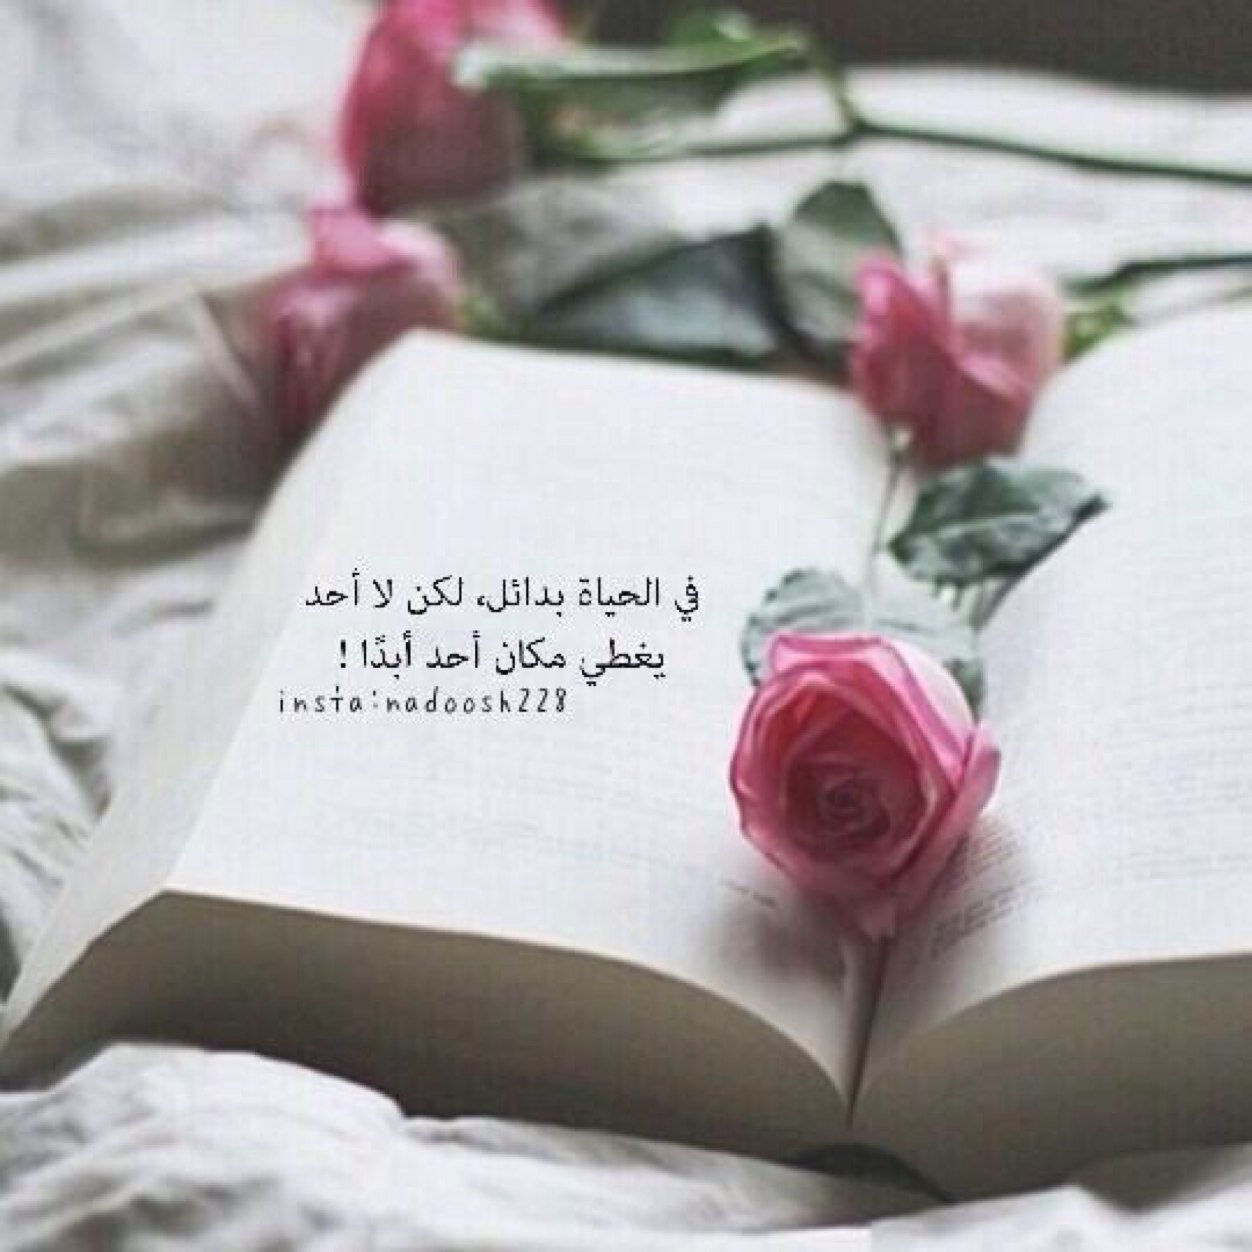 في الحياة بدائل، لكن لا أحد
يغطي مكان أحد أبدًا !
insta:nadoosh228